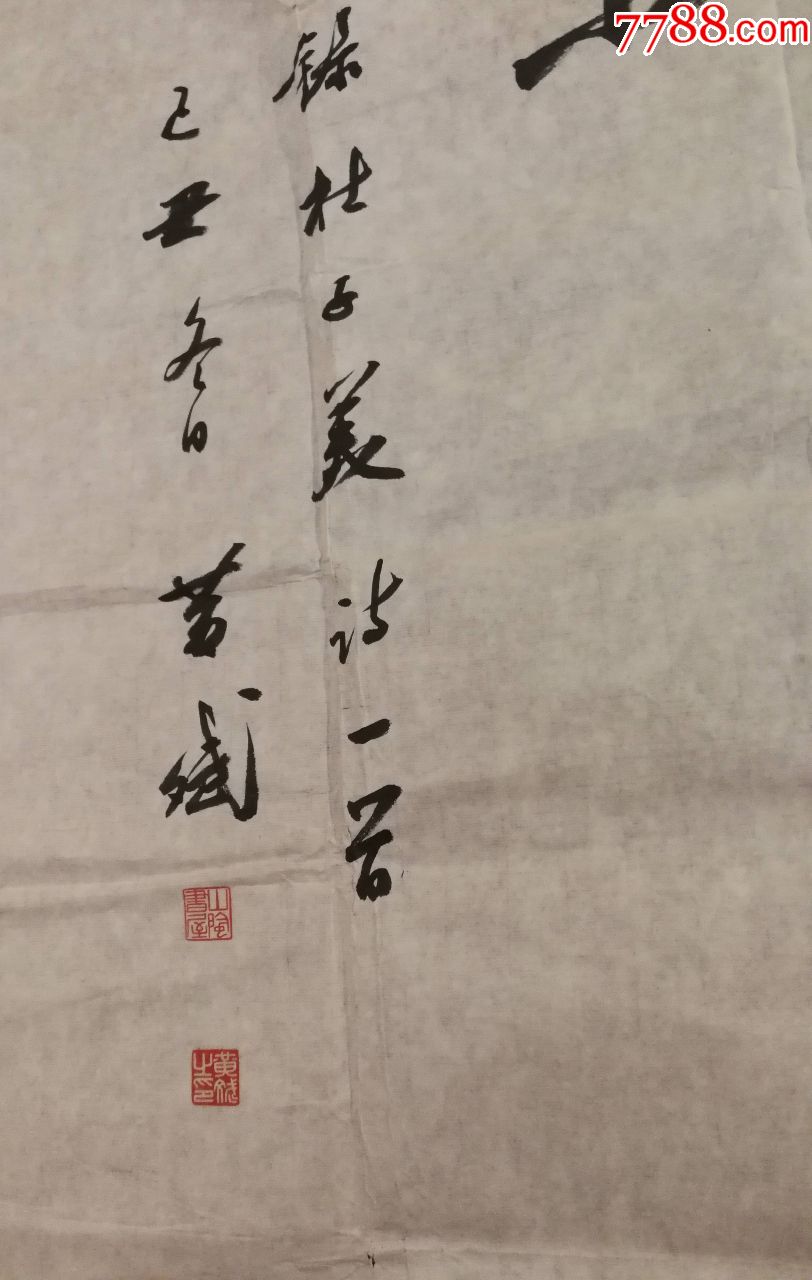 7788.com
録杜子美诗一首
己丑冬日 黄斌
山陰書屋
黄斌之印